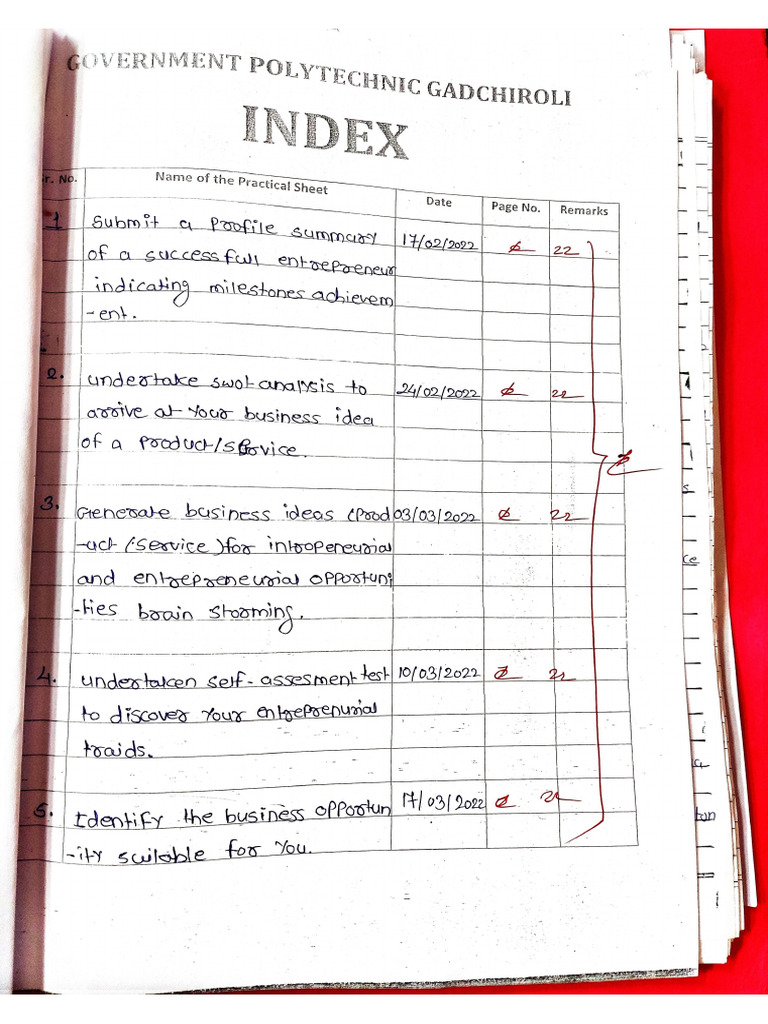 GOVERNMENT POLYTECHNIC GADCHIROLI
INDEX
Sr. No. Name of the Practical Sheet Date Page No. Remarks
1 Submit a Profile summary 17/02/2022 22
of a successfull entrepreneur
indicating milestones achievem
-ent.
2. undertake swot analysis to 24/02/2022 22
arrive at your business idea
of a product/service.
3. Generate business ideas (Prod 03/03/2022 22
-uct (service) for intropeneurial
and entrepreneurial opportuni
-ties brain storming.
4. undertaken self-assesment test 10/03/2022
to discover your entreprenurial
traids.
5. Identify the business opportun 17/03/2022
-ity suilable for you.